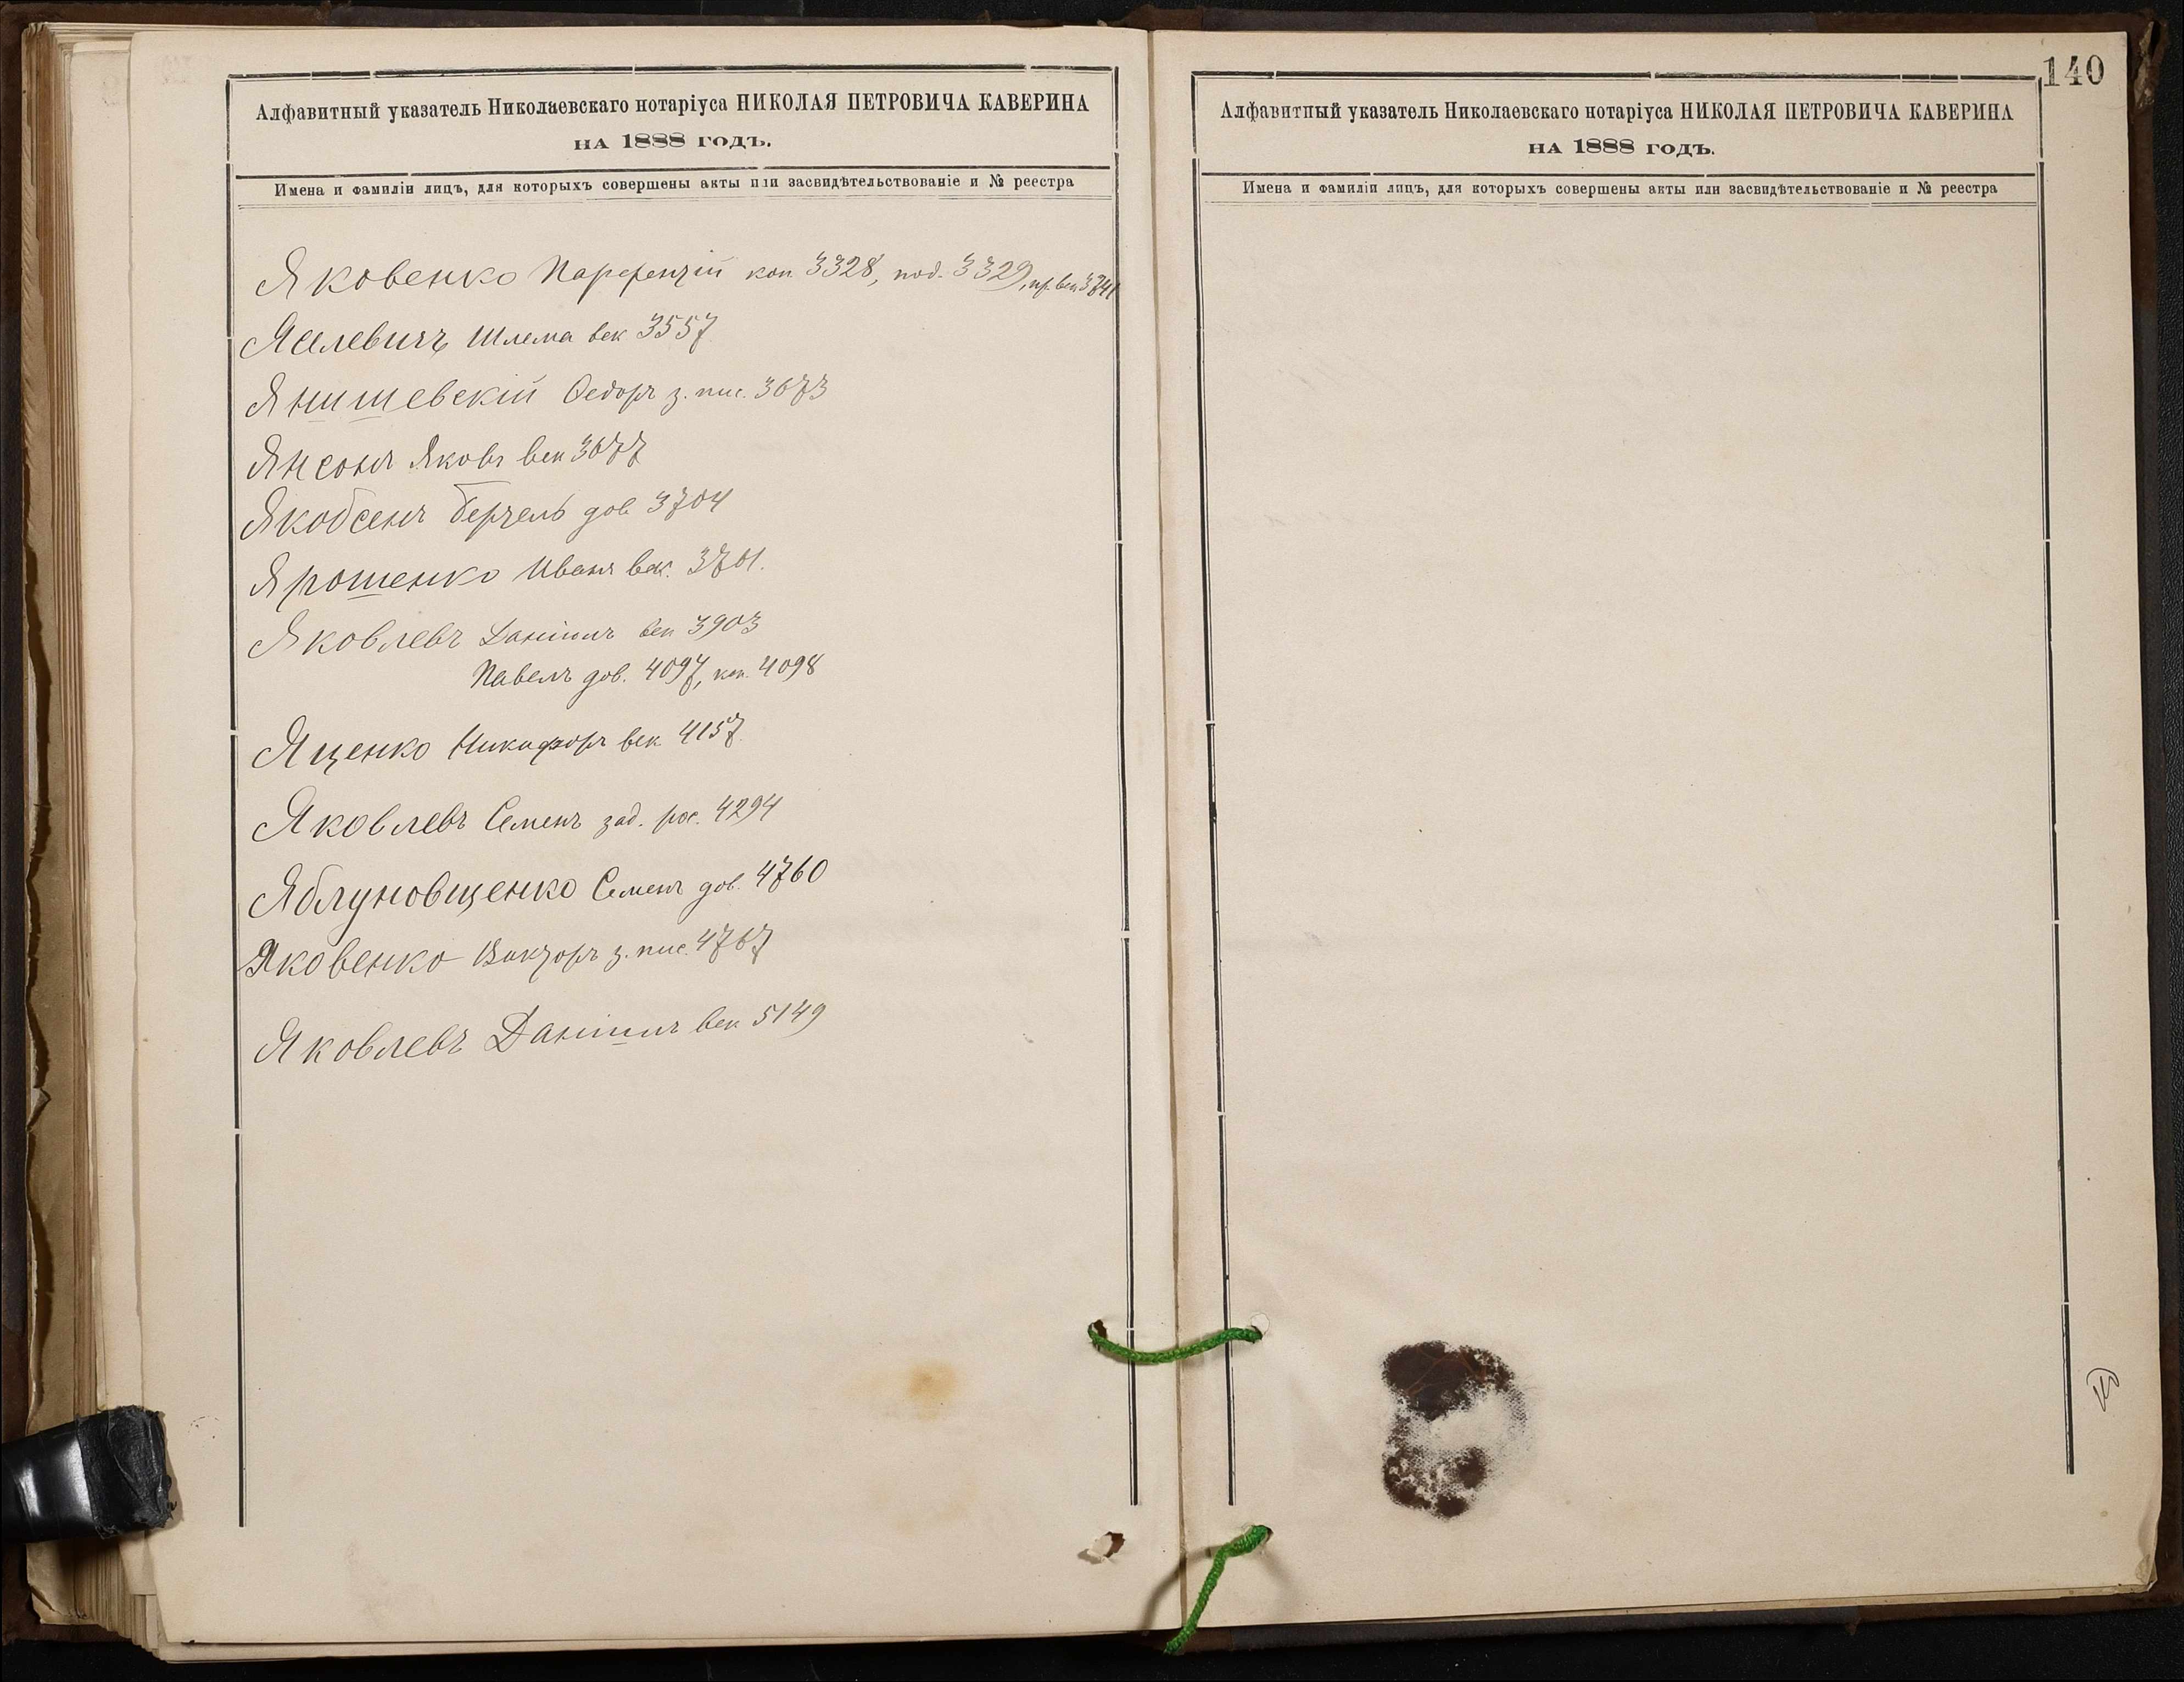 Алфавитный указатель Николаевскаго нотаріуса НИКОЛАЯ ПЕТРОВИЧА КАВЕРИНА
НА 1888 ГОДЪ.
Имена и фамиліи лицъ, для которыхъ совершены акты или засвидѣтельствованіе и № реестра
Яковенко Парфентій коп 3328, под. 3329, пр. век 3741
Яселевичъ Шлема век 3557
Янишевскій Федоръ з. пис. 3673
Янсонъ Яковъ век 3677
Якобсенъ Берчель дов 3704
Ярошенко Иванъ век. 3761.
Яковлевъ Даніилъ век 3903
Павелъ дов. 4097, коп. 4098
Яценко Никифоръ век 4157
Яковлевъ Семенъ зад. рос. 4294
Яблуновщенко Семенъ дов. 4760
Яковенко Викторъ з. пис. 4767
Яковлевъ Даніилъ век 5149
140
Алфавитный указатель Николаевскаго нотаріуса НИКОЛАЯ ПЕТРОВИЧА КАВЕРИНА
НА 1888 ГОДЪ.
Имена и фамиліи лицъ, для которыхъ совершены акты или засвидѣтельствованіе и № реестра